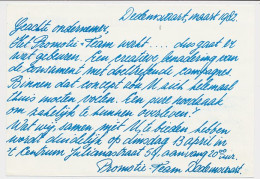 Dedemsvaart, maart 1982.
Geachte ondernemer,
Het Promotie-Team wakt... dus gaat er
wat gebeuren. Een creatieve benadering van
de consument met doeltreffende campagnes
Binnen dat concept zou U zich helemaal
thuis moeten voelen. Een pure noodzaak
om zakelijk te kunnen overleven!
Wat wij samen met U te bieden hebben
wordt duidelijk op dinsdag 13 april in
't Centrum Julianastraat 54 aanvang 20.00 uur.
Promotie-Team Dedemsvaart.